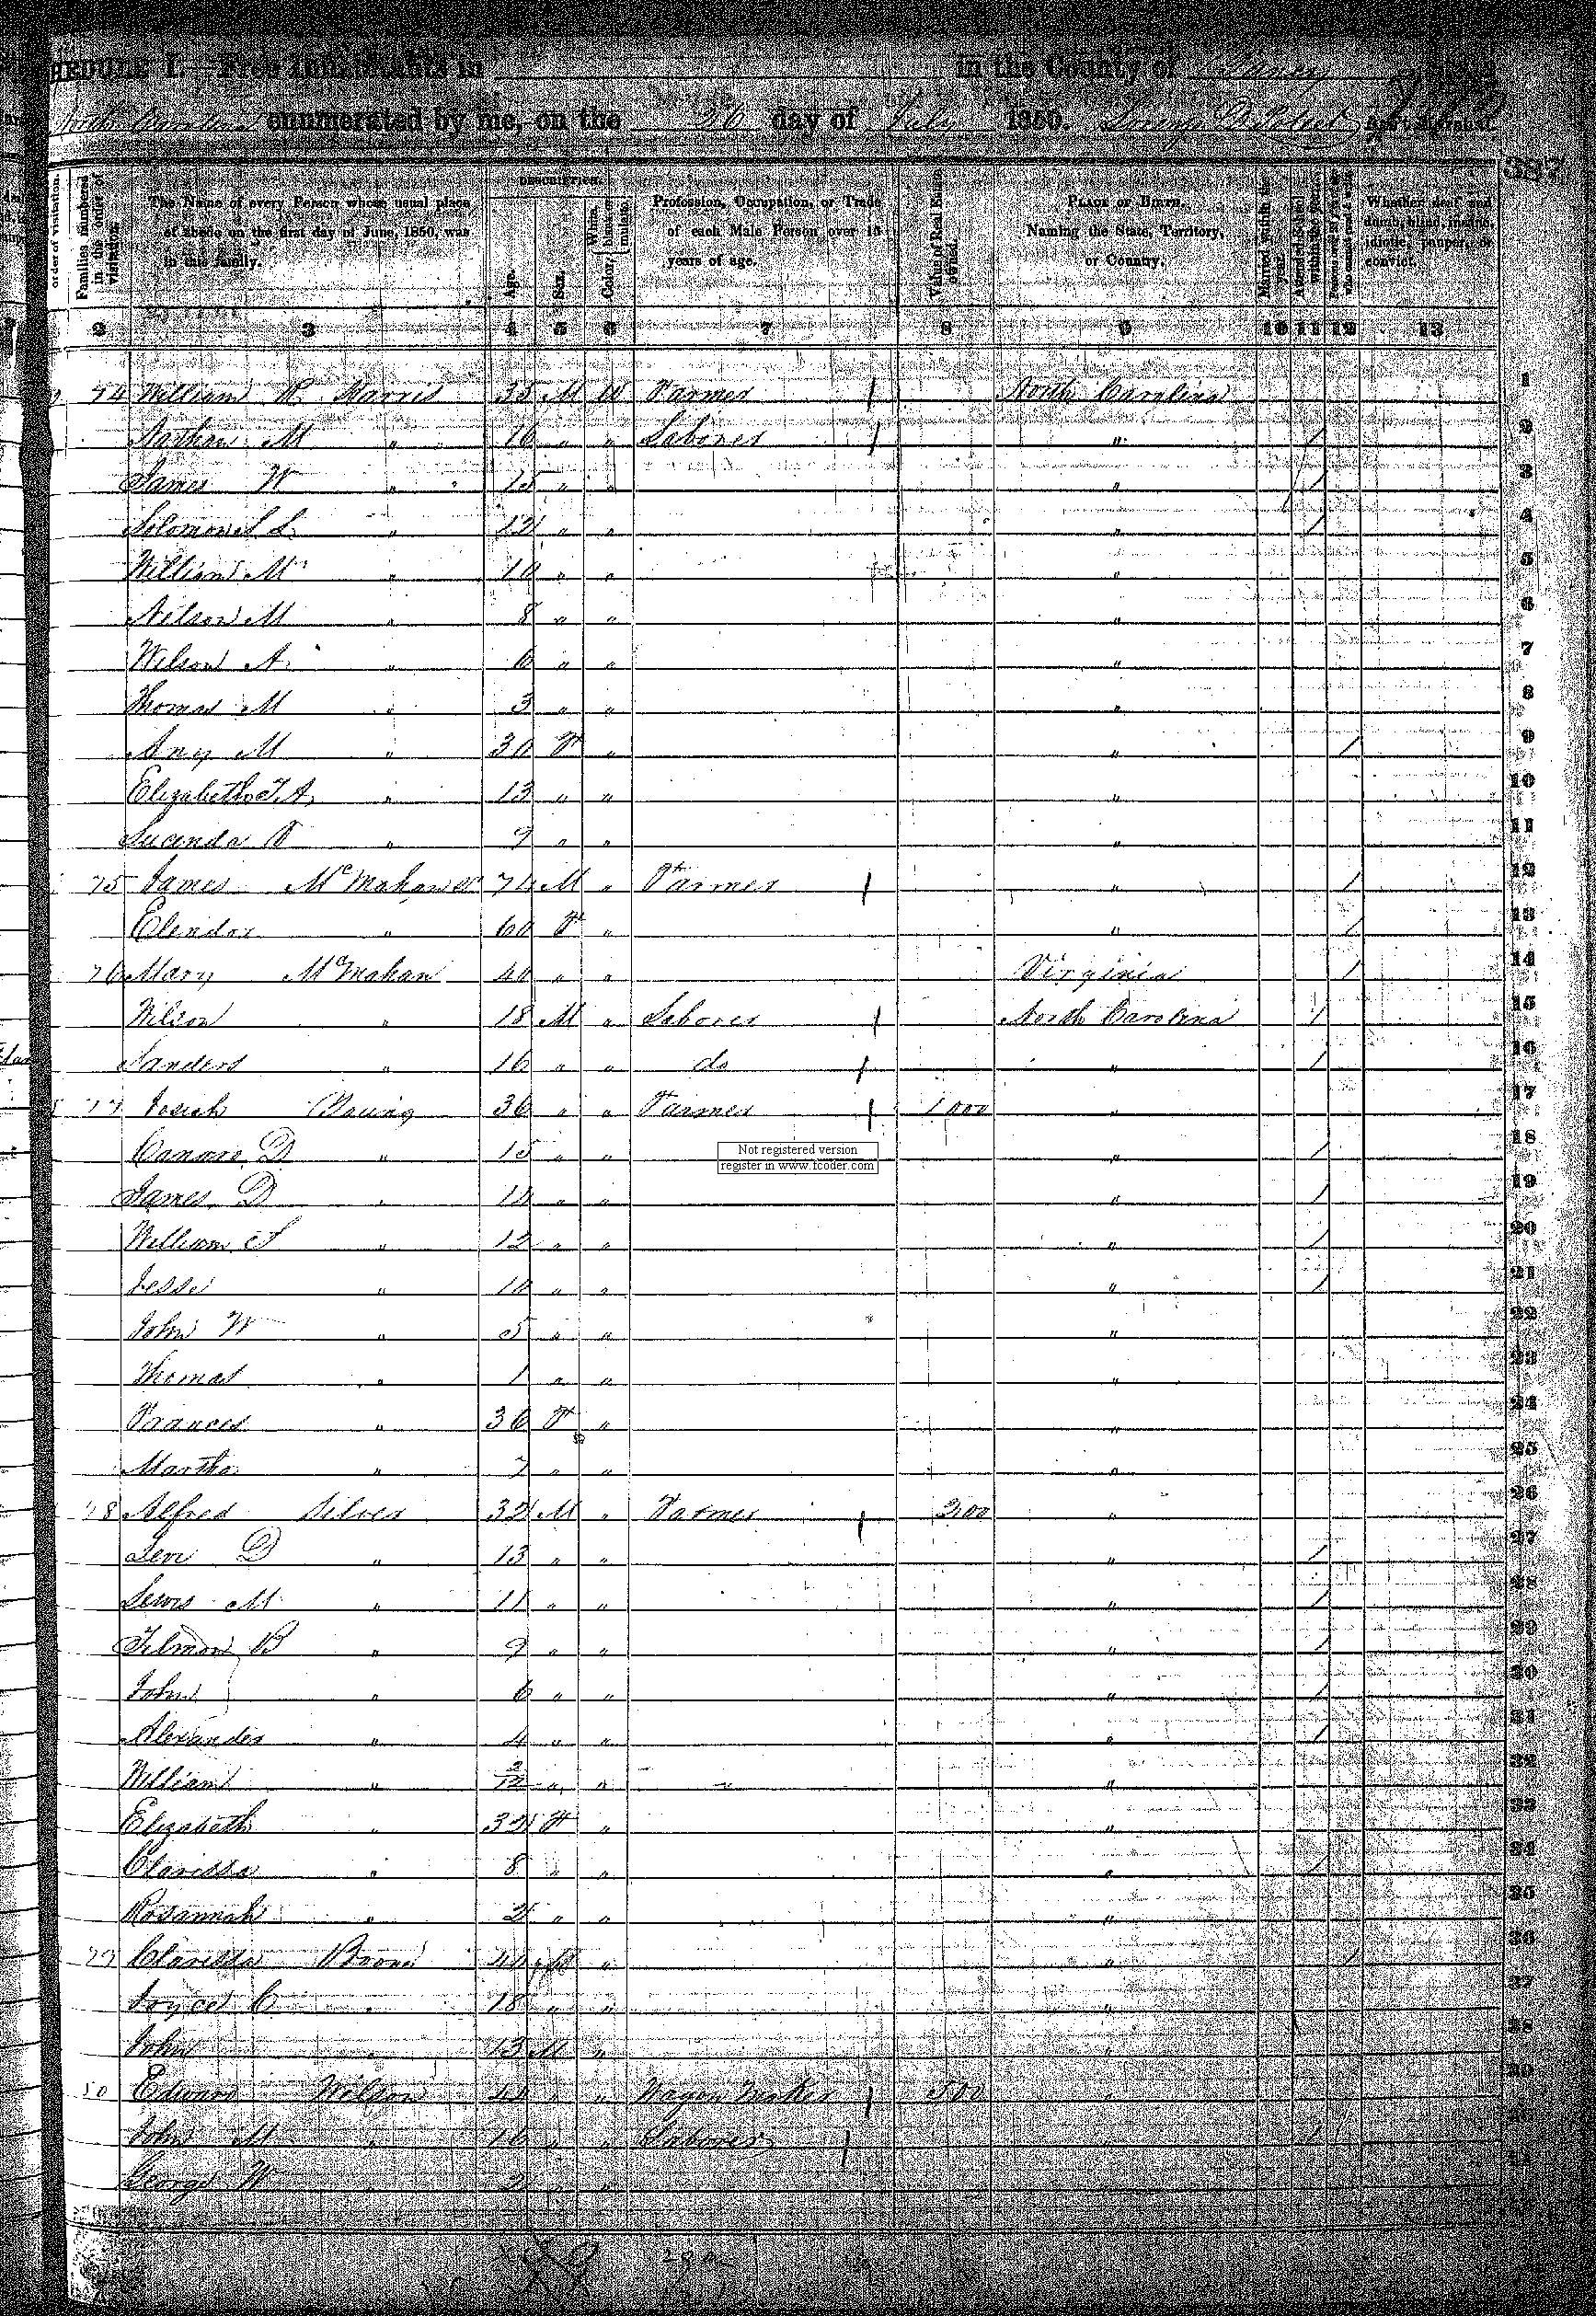 HEDULE I.—Free Inhabitants in in the County of Yancey
North Carolina enumerated by me, on the 26 day of July 1850.
387
order of visitation.
Families numbered in the order of visitation.
The Name of every Person whose usual place of abode on the first day of June, 1850, was in this family.
DESCRIPTION.
Age.
Sex.
Color, White, black, or mulatto.
Profession, Occupation, or Trade of each Male Person over 15 years of age.
Value of Real Estate owned.
PLACE OF BIRTH. Naming the State, Territory, or Country.
Married within the year.
Attended School within the year.
Whether deaf and dumb, blind, insane, idiotic, pauper, or convict.
2 3 4 5 6 7 8 9 10 11 12 13
74 William R Harris 35 M W Farmer North Carolina 1
Nathan M " 16 " " Laborer " / 2
James W " 15 " " " / 3
Solomon S L " 12 " " " / 4
William M " 10 " " " 5
Nelson M " 8 " " " 6
Wilson A " 6 " " " 7
Thomas M " 3 " " " 8
Any M " 30 F " " / 9
Elizabeth T. A. " 13 " " " 10
Lucinda F " 9 " " " 11
75 James McMahan 74 M " Farmer " / 12
Elendor " 60 F " " / 13
76 Mary McMahan 40 " " Virginia / 14
Wilson " 18 M " Laborer North Carolina / 15
Sanders " 16 " " do " / 16
77 Josiah Young 36 " " Farmer 1000 " 17
D " 15 " " " / 18
James D " 14 " " " / 19
William S " 12 " " " / 20
Jesse " 10 " " " / 21
John W " 5 " " " 22
Thomas " 1 " " " 23
Frances " 36 F " " 24
Martha " 7 " " " 25
78 Alfred Silver 32 M " Farmer 200 " 26
Levi D " 13 " " " / 27
Lewis M " 11 " " " / 28
Tilmon B " 9 " " " / 29
John " 6 " " " / 30
Alexander " 4 " " " / 31
William " 2/12 " " " 32
Elizabeth " 32 F " " 33
Clarissa " 8 " " " / 34
Rosannah " 2 " " " 35
79 Clarissa Boone 44 F " " / 36
Joyce C " 18 " " " 37
John " 13 M " " 38
80 Edward Wilson 44 " " Wagon Maker 500 " 39
John M " 16 " " Laborer " /
George W " 2 " "
Not registered version
register in www.fcoder.com